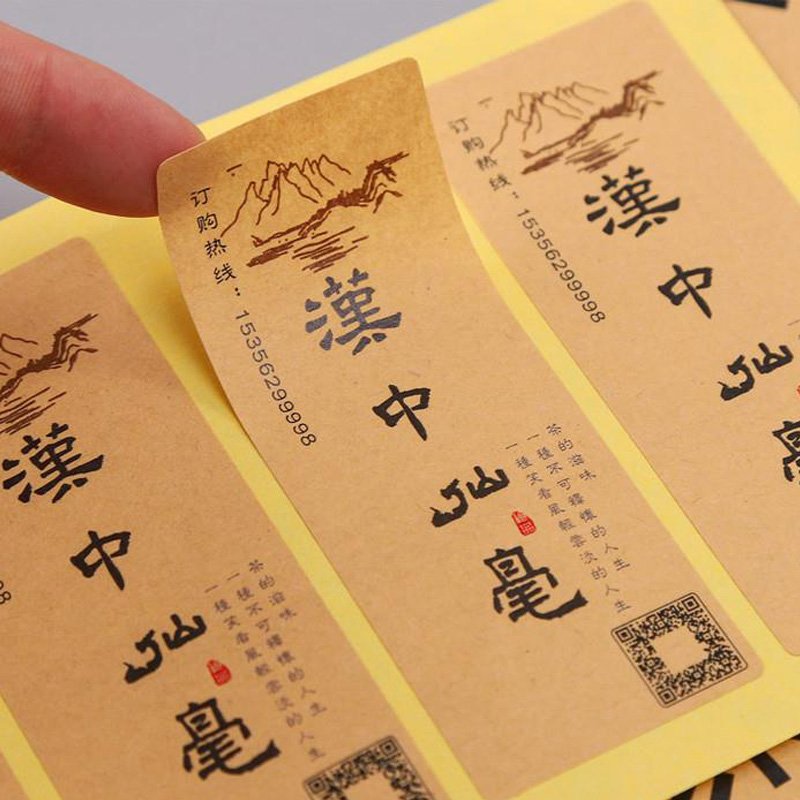 订购热线：15356299998
漢中仙毫
茶的滋味
一種不可釋懷的人生
一種笑看風輕雲淡的人生
订购热线：15356299998
漢中仙毫
漢中仙毫
茶的滋味
一種不可釋懷的人生
一種笑看風輕雲淡的人生